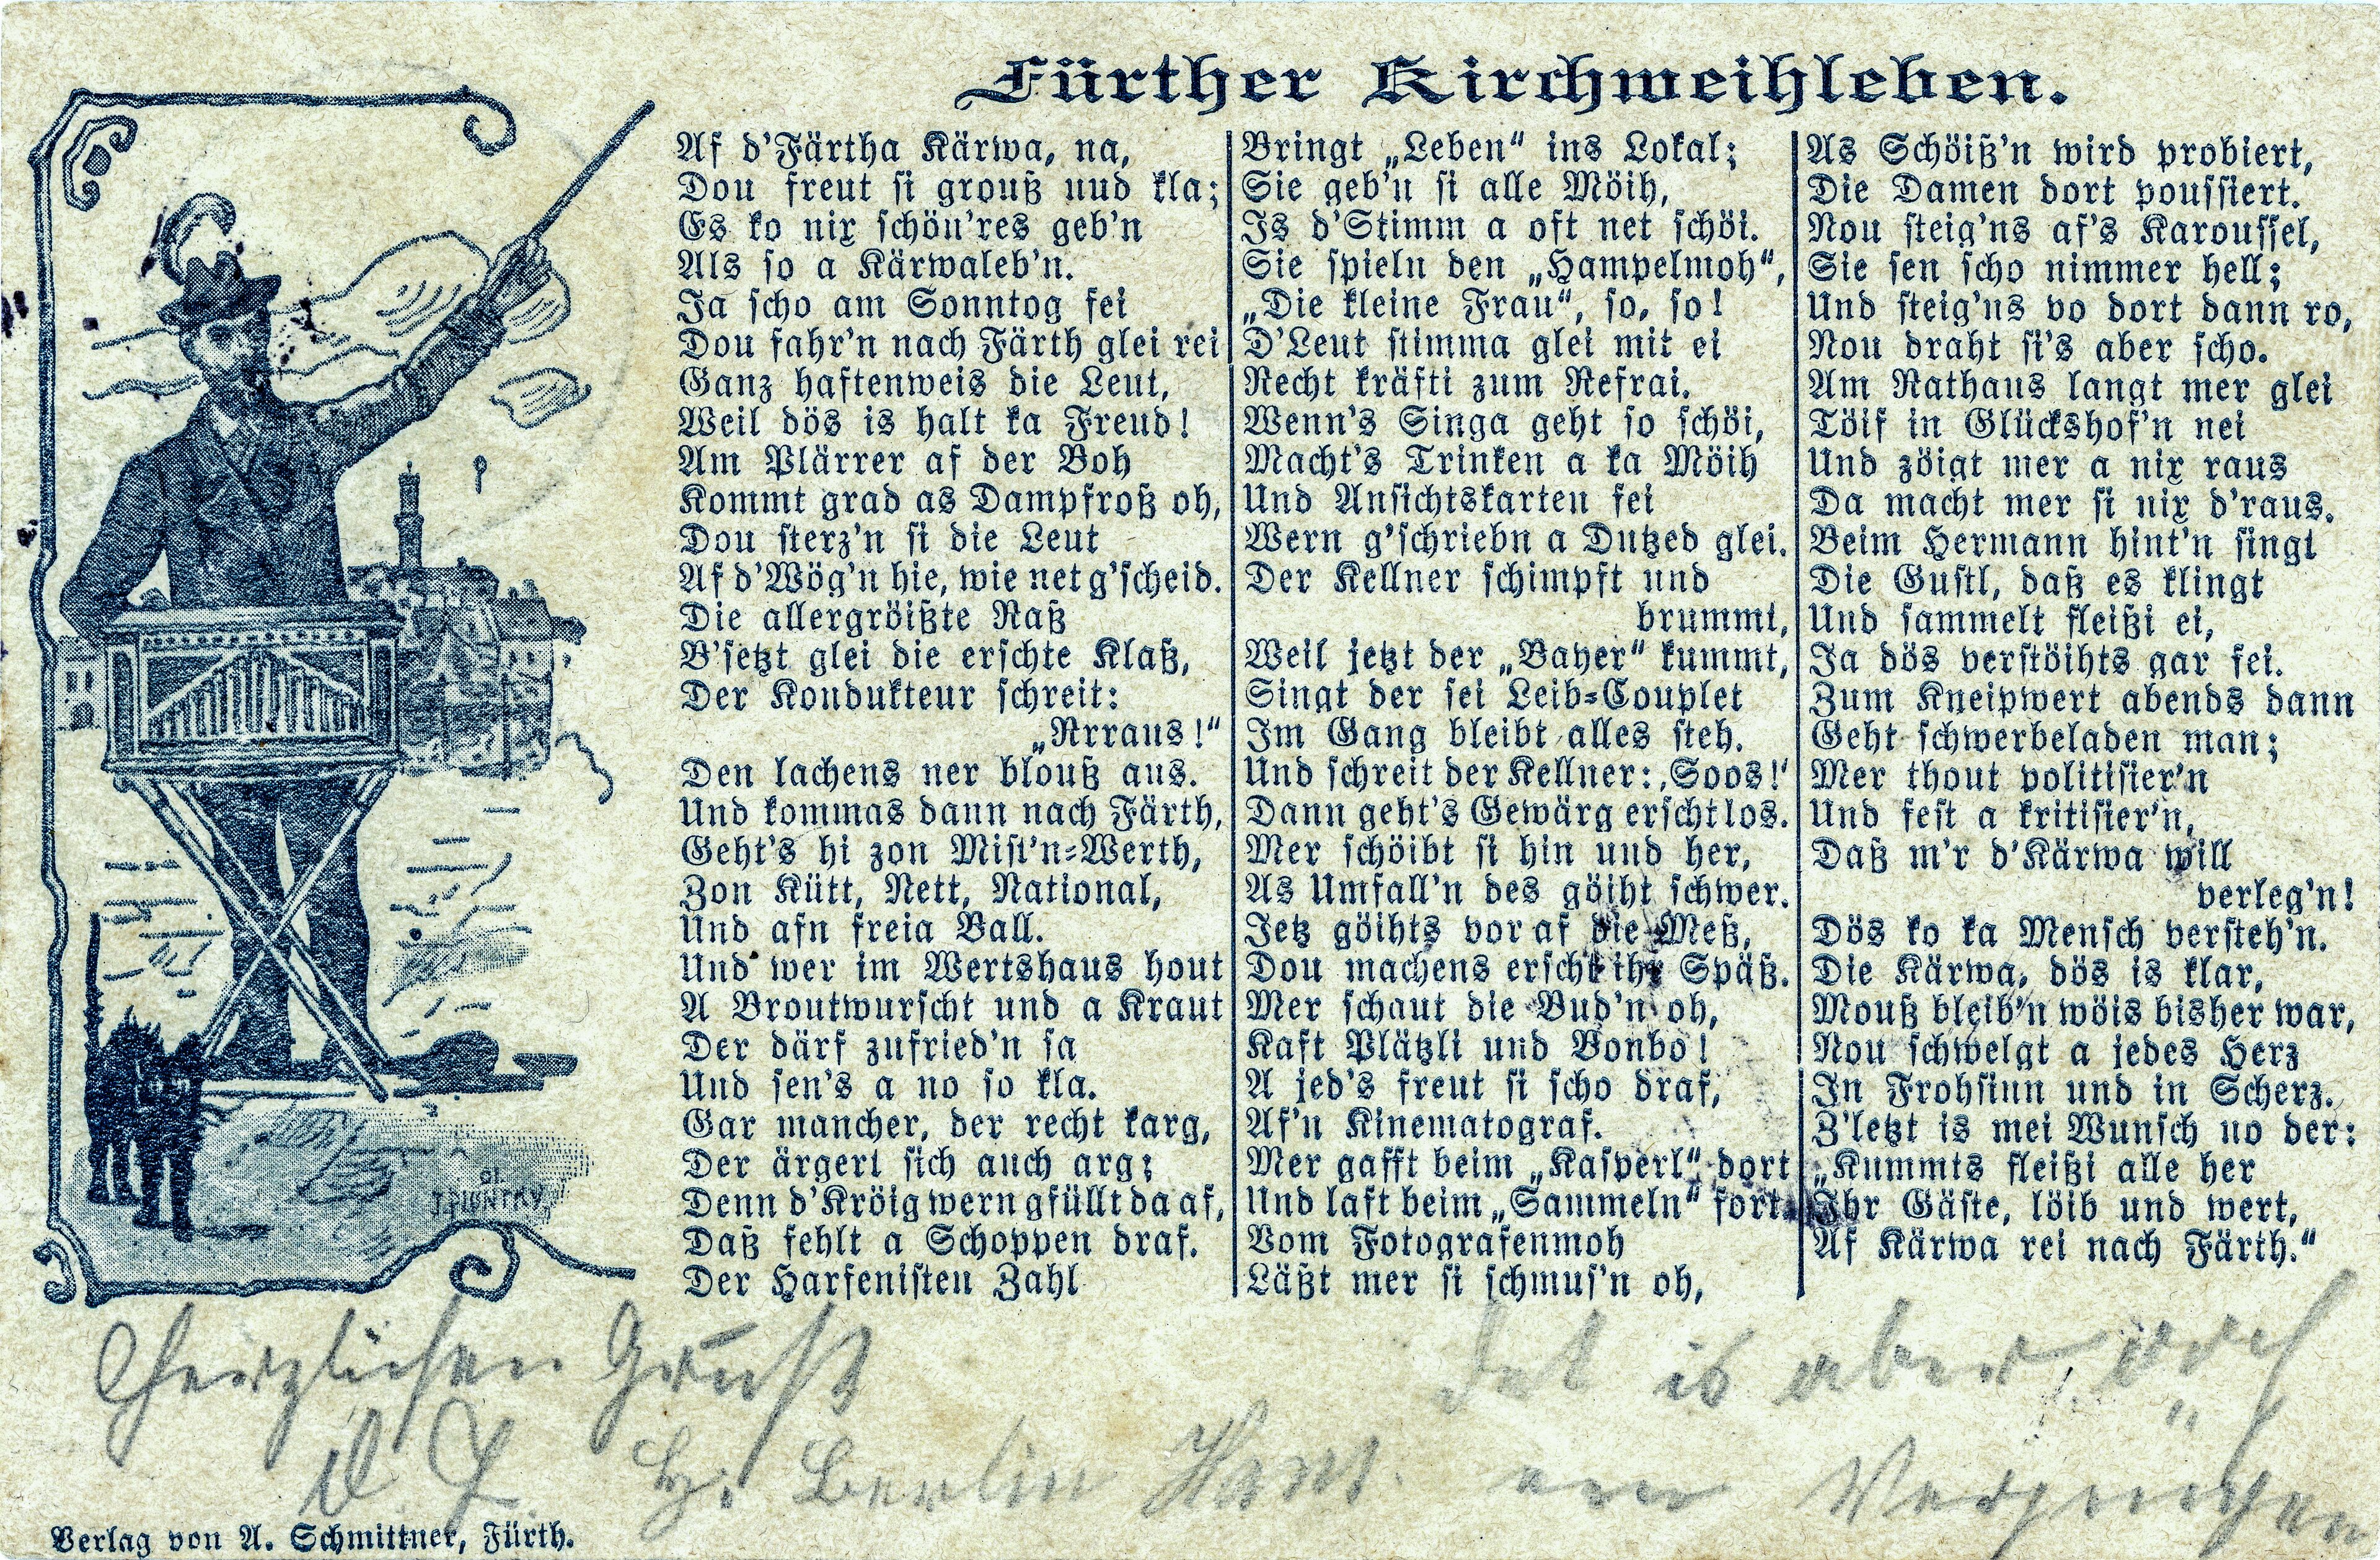 Fürther Kirchweihleben.
Af d'Färtha Kärwa, na,
Dou freut si grouß uud kla;
Es ko nix schön'res geb'n
Als so a Kärwaleb'n.
Ja scho am Sonntog fei
Dou fahr'n nach Färth glei rei
Ganz haftenweis die Leut,
Weil dös is halt ka Freud!
Am Plärrer af der Boh
Kommt grad as Dampfroß oh,
Dou sterz'n si die Leut
Af d'Wög'n hie, wie net g'scheid.
Die allergröißte Raß
B'setzt glei die erschte Klaß,
Der Kondukteur schreit:
„Rrraus!“
Den lachens ner blouß aus.
Und kommas dann nach Färth,
Geht's hi zon Mist'n-Werth,
Zon Kütt, Nett, National,
Und afn freia Ball.
Und wer im Wertshaus hout
A Broutwurscht und a Kraut
Der därf zufried'n sa
Und sen's a no so kla.
Gar mancher, der recht karg,
Der ärgert sich auch arg;
Denn d'Kröig wern gfüllt da af,
Daß fehlt a Schoppen draf.
Der Harfenisten Zahl
Bringt „Leben“ ins Lokal;
Sie geb'n si alle Möih,
Is d'Stimm a oft net schöi.
Sie spieln den „Hampelmoh“,
„Die kleine Frau“, so, so!
D'Leut stimma glei mit ei
Recht kräfti zum Refrai.
Wenn's Singa geht so schöi,
Macht's Trinken a ka Möih
Und Ansichtskarten fei
Wern g'schriebn a Dutzed glei.
Der Kellner schimpft und
brummt,
Weil jetzt der „Bayer“ kummt,
Singt der sei Leib-Couplet
Im Gang bleibt alles steh.
Und schreit der Kellner: ‚Soos!‘
Dann geht's Gewärg erscht los.
Mer schöibt si hin und her,
As Umfall'n des göiht schwer.
Jetz göihts vor af die Meß,
Dou machens erscht ihr Späß.
Mer schaut die Bud'n oh,
Kaft Plätzli und Bonbo!
A jed's freut si scho draf,
Af'n Kinematograf.
Mer gafft beim „Kasperl“ dort
Und laft beim „Sammeln“ fort.
Vom Fotografenmoh
Läßt mer si schmus'n oh,
As Schöiß'n wird probiert,
Die Damen dort poussiert.
Nou steig'ns af's Karoussel,
Sie sen scho nimmer hell;
Und steig'ns vo dort dann ro,
Nou draht si's aber scho.
Am Rathaus langt mer glei
Töif in Glückshof'n nei
Und zöigt mer a nix raus
Da macht mer si nix d'raus.
Beim Hermann hint'n singt
Die Gustl, daß es klingt
Und sammelt fleißi ei,
Ja dös verstöihts gar fei.
Zum Kneipwert abends dann
Geht schwerbeladen man;
Mer thout politisier'n
Und fest a kritisier'n,
Daß m'r d'Kärwa will
verleg'n!
Dös ko ka Mensch versteh'n.
Die Kärwa, dös is klar,
Mouß bleib'n wöis bisher war,
Nou schwelgt a jedes Herz
In Frohsinn und in Scherz.
Z'letzt is mei Wunsch no der:
„Kummts fleißi alle her
Ihr Gäste, löib und wert,
Af Kärwa rei nach Färth.“
Herzlichen Gruß
det is aber
Berlin
ein Vergnügen
Verlag von A. Schmittner, Fürth.